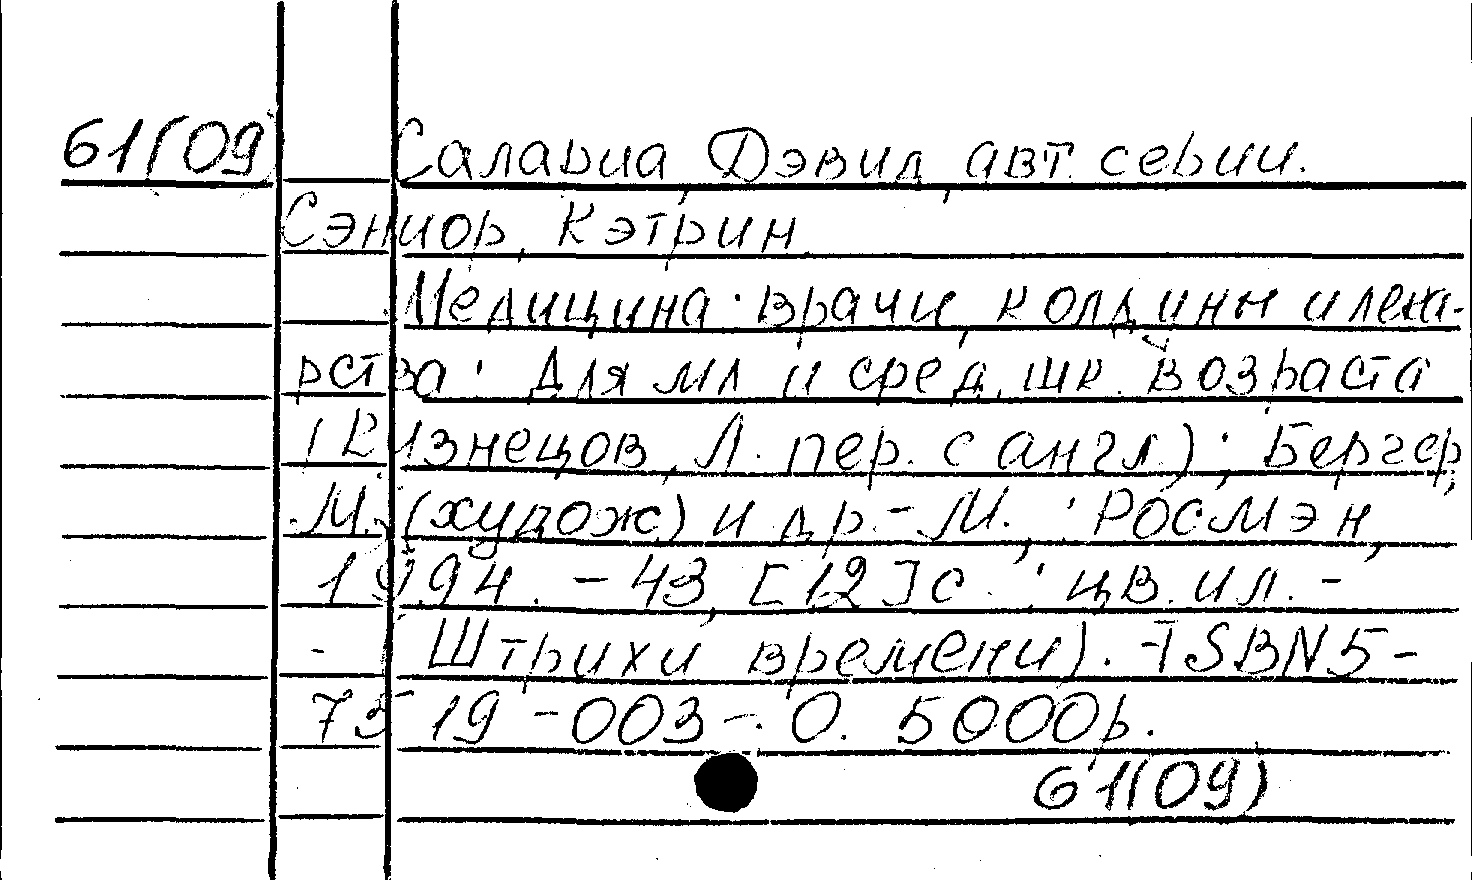 61(09) Салариа, Дэвид, авт. серии.
Сэниор, Кэтрин
Медицина: врачи, колдуны и лека-
рства: Для мл. и сред. шк. возраста
(Кузнецов, Л. пер. с англ.); Бергер,
М. (худож) и др. - М., : РОСМЭН,
1994. - 43, [12]с. : цв. ил. -
- (Штрихи времени). ISBN 5-
7519-003-. 0. 5000р.
61(09)